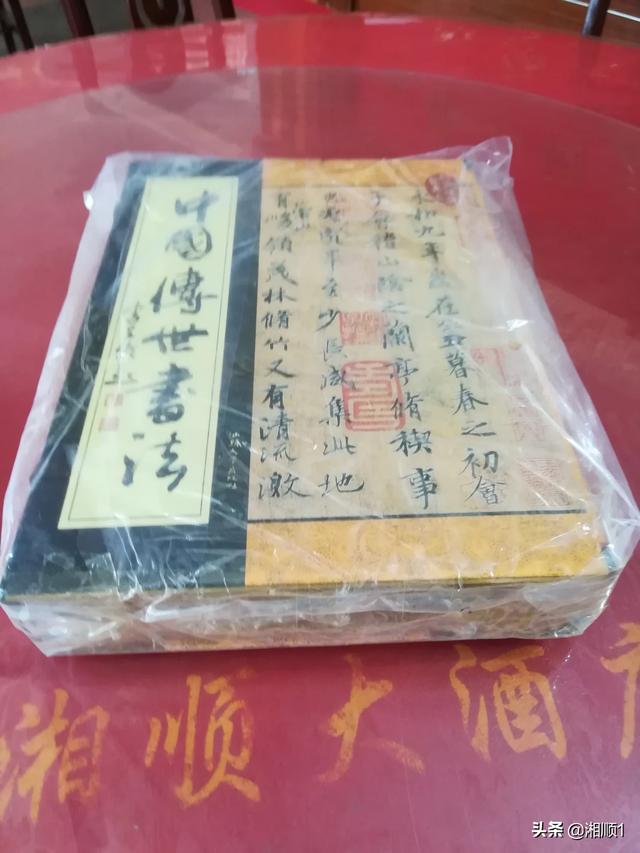 中國傳世書法
永和九年歲在癸丑暮春之初會
于會稽山陰之蘭亭脩稧事
也羣賢畢至少長咸集此地
有崇山峻領茂林脩竹又有清流激
湘顺大酒
头条 @湘顺1